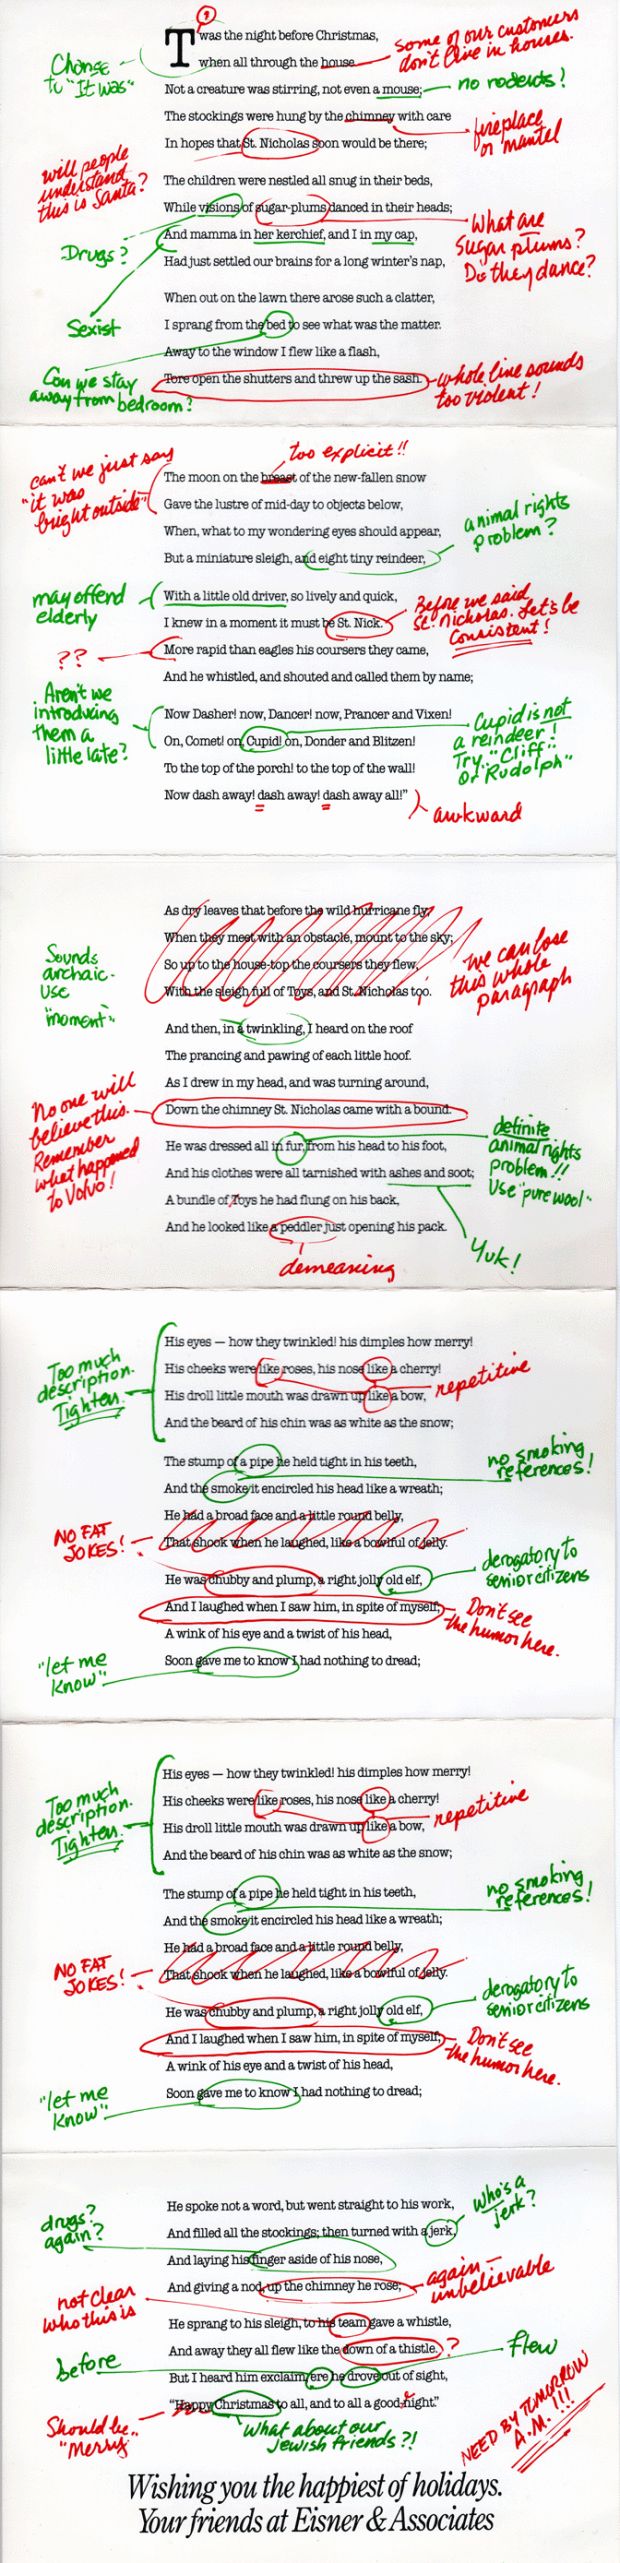 ?
'Twas the night before Christmas,
when all through the house
some of our customers
don't live in houses.
Change
to "It was"
Not a creature was stirring, not even a mouse;
no rodents?
The stockings were hung by the chimney with care
fireplace
or mantel
In hopes that St. Nicholas soon would be there;
will people
understand
this is Santa?
The children were nestled all snug in their beds,
While visions of sugar-plums danced in their heads;
What are
Sugar plums?
Do they dance?
Drugs?
And mamma in her kerchief, and I in my cap,
Had just settled our brains for a long winter's nap,
Sexist
When out on the lawn there arose such a clatter,
I sprang from the bed to see what was the matter.
Can we stay
away from bedroom?
Away to the window I flew like a flash,
Tore open the shutters and threw up the sash.
whole line sounds
too violent!
can't we just say
"it was
bright outside"
too explicit!!
The moon on the breast of the new-fallen snow
Gave the lustre of mid-day to objects below,
When, what to my wondering eyes should appear,
But a miniature sleigh, and eight tiny reindeer,
animal rights
problem?
may offend
elderly
With a little old driver, so lively and quick,
I knew in a moment it must be St. Nick.
Before we said
St. Nicholas. Let's be
Consistent!
??
More rapid than eagles his coursers they came,
And he whistled, and shouted and called them by name;
Aren't we
introducing
them a
little late?
Now Dasher! now, Dancer! now, Prancer and Vixen!
On, Comet! on, Cupid! on, Donder and Blitzen!
Cupid is not
a reindeer!
Try.. "Cliff"
or "Rudolph"
To the top of the porch! to the top of the wall!
Now dash away! dash away! dash away all!"
awkward
As dry leaves that before the wild hurricane fly,
When they meet with an obstacle, mount to the sky;
So up to the house-top the coursers they flew,
With the sleigh full of Toys, and St. Nicholas too.
we can lose
this whole
paragraph
Sounds
archaic-
use
"moment"
And then, in a twinkling, I heard on the roof
The prancing and pawing of each little hoof.
As I drew in my head, and was turning around,
Down the chimney St. Nicholas came with a bound.
No one will
believe this.
Remember
what happened
to Volvo!
He was dressed all in fur, from his head to his foot,
definite
animal rights
problem!!
Use "pure wool"
And his clothes were all tarnished with ashes and soot;
Yuk!
A bundle of Toys he had flung on his back,
And he looked like a peddler just opening his pack.
demeaning
Too much
description.
Tighten.
His eyes — how they twinkled! his dimples how merry!
His cheeks were like roses, his nose like a cherry!
His droll little mouth was drawn up like a bow,
repetitive
And the beard of his chin was as white as the snow;
The stump of a pipe he held tight in his teeth,
no smoking
references!
And the smoke it encircled his head like a wreath;
He had a broad face and a little round belly,
That shook when he laughed, like a bowlful of jelly.
NO FAT
JOKES!
He was chubby and plump, a right jolly old elf,
derogatory to
senior citizens
And I laughed when I saw him, in spite of myself;
Don't see
the humor here.
A wink of his eye and a twist of his head,
Soon gave me to know I had nothing to dread;
"let me
know"
Too much
description.
Tighten.
His eyes — how they twinkled! his dimples how merry!
His cheeks were like roses, his nose like a cherry!
His droll little mouth was drawn up like a bow,
repetitive
And the beard of his chin was as white as the snow;
The stump of a pipe he held tight in his teeth,
no smoking
references!
And the smoke it encircled his head like a wreath;
He had a broad face and a little round belly,
That shook when he laughed, like a bowlful of jelly.
NO FAT
JOKES!
He was chubby and plump, a right jolly old elf,
derogatory to
senior citizens
And I laughed when I saw him, in spite of myself;
Don't see
the humor here.
A wink of his eye and a twist of his head,
Soon gave me to know I had nothing to dread;
"let me
know"
He spoke not a word, but went straight to his work,
And filled all the stockings; then turned with a jerk,
who's a
jerk?
drugs?
again?
And laying his finger aside of his nose,
And giving a nod, up the chimney he rose;
again—
unbelievable
not clear
who this is
He sprang to his sleigh, to his team gave a whistle,
And away they all flew like the down of a thistle.
?
before
But I heard him exclaim, ere he drove out of sight,
flew
"Happy Christmas to all, and to all a good-night."
Should be..
"Merry"
What about our
Jewish friends?!
NEED BY TOMORROW
A.M.!!!
Wishing you the happiest of holidays.
Your friends at Eisner & Associates